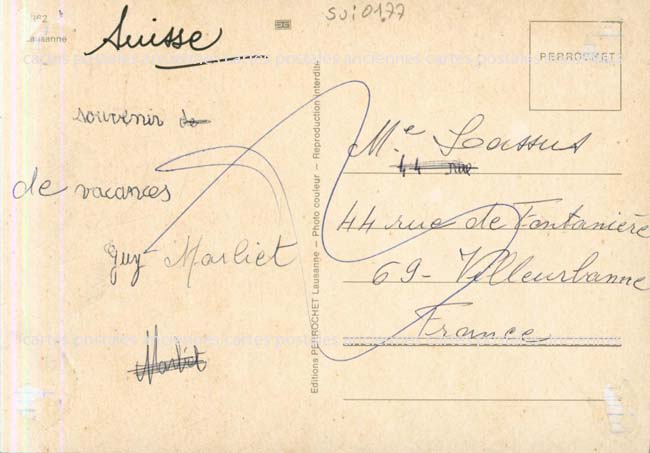 Suisse
SUi0177
Lausanne
PERROCHET
cartes postales anciennes cartes postales anciennes cartes postales
souvenir de
de vacances
Guy Marliet
Marliet
Editions PERROCHET Lausanne — Photo couleur — Reproduction interdite
Me Lassus
44 rue
44 rue de Fontanière
69 - Villeurbanne
France
cartes postales anciennes cartes postales anciennes cartes postales